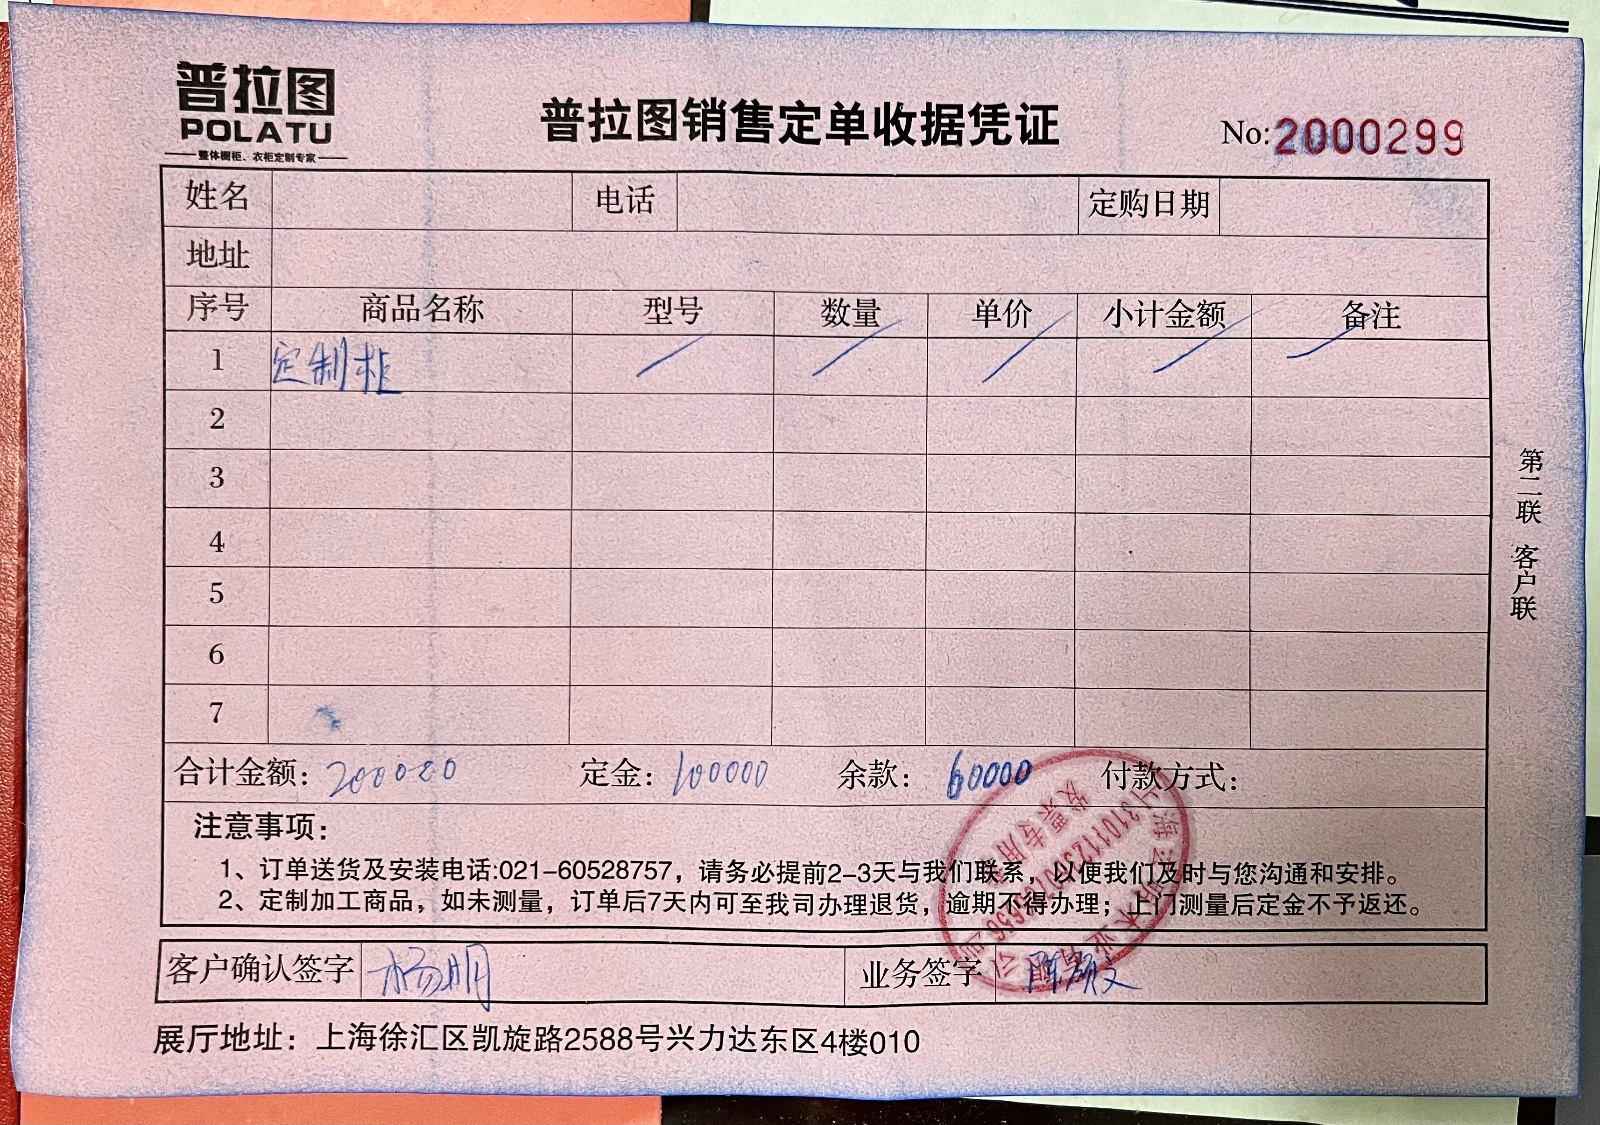 普拉图
POLATU
整体橱柜、衣柜定制专家
普拉图销售定单收据凭证
No:2000299
姓名 电话 定购日期
地址
序号 商品名称 型号 数量 单价 小计金额 备注
1 定制柜
2
3
4
5
6
7
合计金额：200000 定金：100000 余款：60000 付款方式：
注意事项：
1、订单送货及安装电话:021-60528757，请务必提前2-3天与我们联系，以便我们及时与您沟通和安排。
2、定制加工商品，如未测量，订单后7天内可至我司办理退货，逾期不得办理；上门测量后定金不予返还。
发票专用章
客户确认签字 杨明 业务签字
展厅地址：上海徐汇区凯旋路2588号兴力达东区4楼010
第二联 客户联